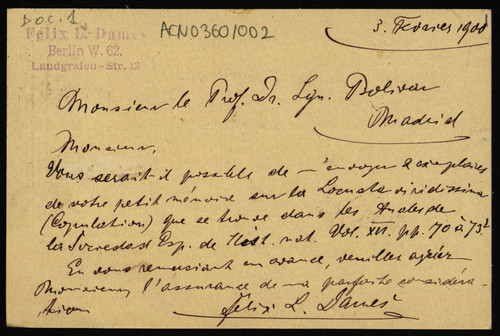 DOC. 1
ACN0360/002
Felix L. Dames
Berlin W. 62.
Landgrafen-Str. 12
3. Février 1900
Monsieur le Prof. Dr. Ign. Bolivar
Madrid
Monsieur,
Vous serait-il possible de m'envoyer 2 exemplaires
de votre petit mémoire sur la Locusta viridissima
(Copulation) que se trouve dans les Anales de
la Sociedad Esp. de Hist. nat. Vol. XII. pp. 70 à 73?
En vous remerciant en avance, veuillez agréer
Monsieur, l'assurance de ma parfaite considéra-
tion
Felix L. Dames